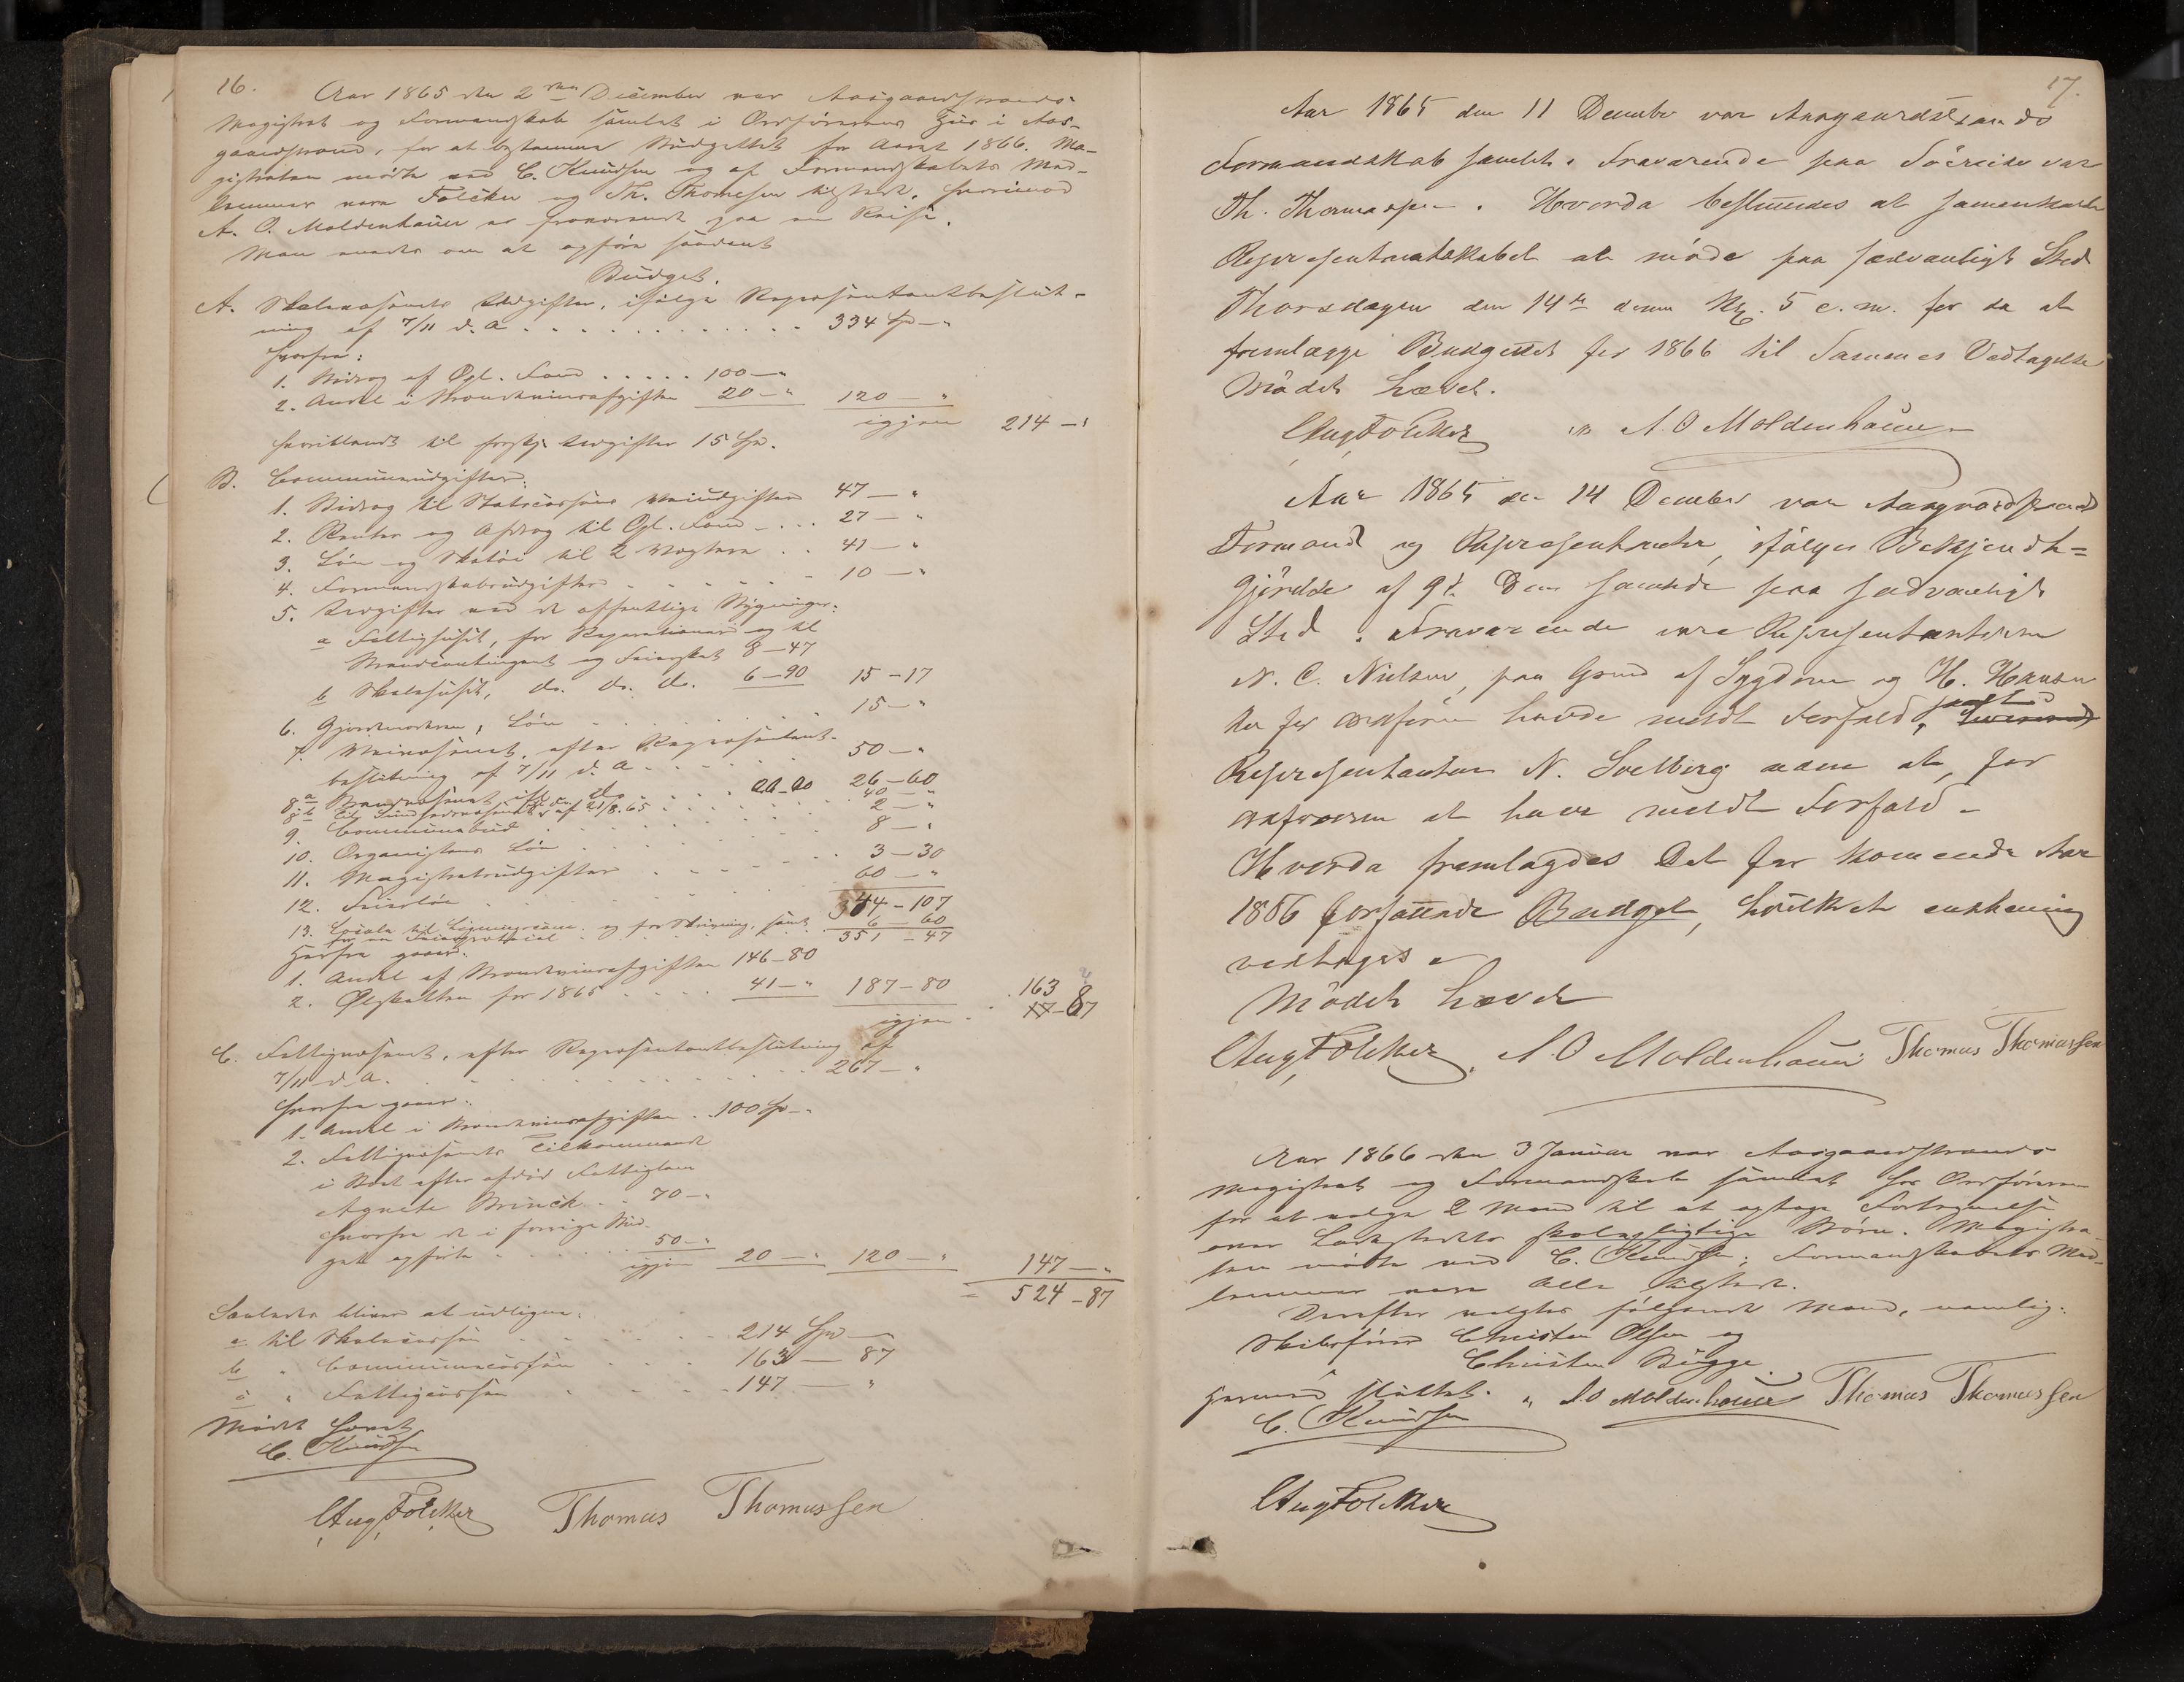 16.
Aar 1865 den 2den December var Aasgaardstrands
Magistrat og Formandskab samlet i Ordførerens Huus i Aas-
gaardstrand, for at bestemme Budgettet for Aaret 1866. Ma-
gistraten mødte ved C. Knudsen og af Formandskabets Med-
lemmer vare Følcker og Th. Thomesen tilstede, hvorimod
A. O. Moldenhauer er fraværende paa en Reise.
Man enedes om at opføre saadant
Budget.
A. Skolevæsenets Udgifter, ifølge Repræsentantbeslut-
ning af 7/11 d. A. . . . 334 Sp — "
Herfra:
1. Bidrag af Opl. Fond . . . . . 100 — "
2. Andel i Brændeviinsafgiften 20 — " 120 — "
igjen 214 — "
hvoriblandt til forskj. Udgifter 15 Sp.
B. Communeudgifter:
1. Bidrag til Statscassens Udgifter 47 — "
2. Renter og Afdrag til Opl. Fond . . . 27 — "
3. Løn og Skotøi til 2 Vægtere . . 41 — "
4. Formandskabsudgifter . . . 10 — "
5. Udgifter ved de offentlige Bygninger:
a Fattighuset, for Reparationer og til
Brandcontingent og Feierskat 8 — 47
b Skolehuset, do. do. do. 6 — 90 15 — 17
6. Gjordemoderen, Løn . . . 15 — "
7. Veivæsenet, efter Repræsentant-
beslutning af 7/11 d. A. . . . 50 — "
8 a Brandvæsenet ifl. do . . . 26 — 60
8 b Til Sundhedsvæsenet af 21/8. 65 . . . 40 — "
9. Communebud . . . 2 — "
10. Organistens Løn . . . 8 — "
11. Magistratsudgifter . . . 3 — 30
12. Feierløn . . . 60 — "
344 — 107
13. Locale til Ligningscom. og for Skrivning, samt
for en Feierprotocol . . . 6 — 60
351 — 47
Herfra gaaer:
1. Andel af Brændeviinsafgiften 146 — 80
2. Ølskatten for 1865 . . . 41 — " 187 — 80
igjen . . 163 — 87
C. Fattigvæsenet, efter Repræsentantbeslutning af
7/11 d. A. . . . 267 — "
Herfra gaaer:
1. Andel i Brændeviinsafgiften . 100 Sp — "
2. Fattigvæsenets Tilkommende
i Boet efter afdød Fattiglem
Agnete Brinck . . 70 — "
Herfra de i forrige Bud-
get opførte . . . 50 — "
igjen 20 — " 120 — " 147 — "
= 524 — 87
Saaledes bliver at udligne:
a til Skolecassen . . . 214 Sp —
b " Communecassen . . . 163 — 87
c " Fattigcassen . . . 147 — "
Mødet hævet
C. Knudsen
Aug Følcker Thomas Thomassen
17.
Aar 1865 den 11 December var Aasgaardstrands
Formandskab samlet. Fraværende paa Søereise var
Th. Thomassen. Hvorda bestemdes at samenkalde
Representantskabet at møde paa sædvanligt Sted
Thorsdagen den 14de denne Kl. 5 e. m. for da at
fremlægge Budgettet for 1866 til Sammes Vedtagelse
Mødet hævet.
Aug Følcker " A. O Moldenhauer
Aar 1865 den 14 December var Aasgaardstrand
Formænd og Representanter, ifølge Bekjendt-
gjørelse af 9d. Dem samlede paa sædvanligt
Sted. Fraværende vare Representanterne
N. C. Nielsen, paa Grund af Sygdom og H. Hansen
der for Ordføren havde meldt Forfald, samt
Representanten N. Solberg uden at, for
Ordføreren at have meldt Forfald -
Hvorda fremlagdes Det for komende Aar
1866 forfattede Budget, hvilket enstemig
vedtoges.
Mødet hævet
Aug Følcker, A. O Moldenhauer Thomas Thomassen
Aar 1866 den 3 Januar var Aasgaardstrands
Magistrat og Formandskab samlet hos Ordføreren
for at vælge 2 Mænd til at optage Fortegnelse
over Ladestedets skolepligtige Børn. Magistra-
ten mødte ved C. Knudsen; Formandskabets Med-
lemmer vare alle tilstede.
Derefter valgtes følgende Mænd, nemlig:
Skibsfører Christen Olsen og
Christen Bugge.
Hermed sluttet. " A. O Moldenhauer Thomas Thomassen
C. Knudsen
Aug Følcker